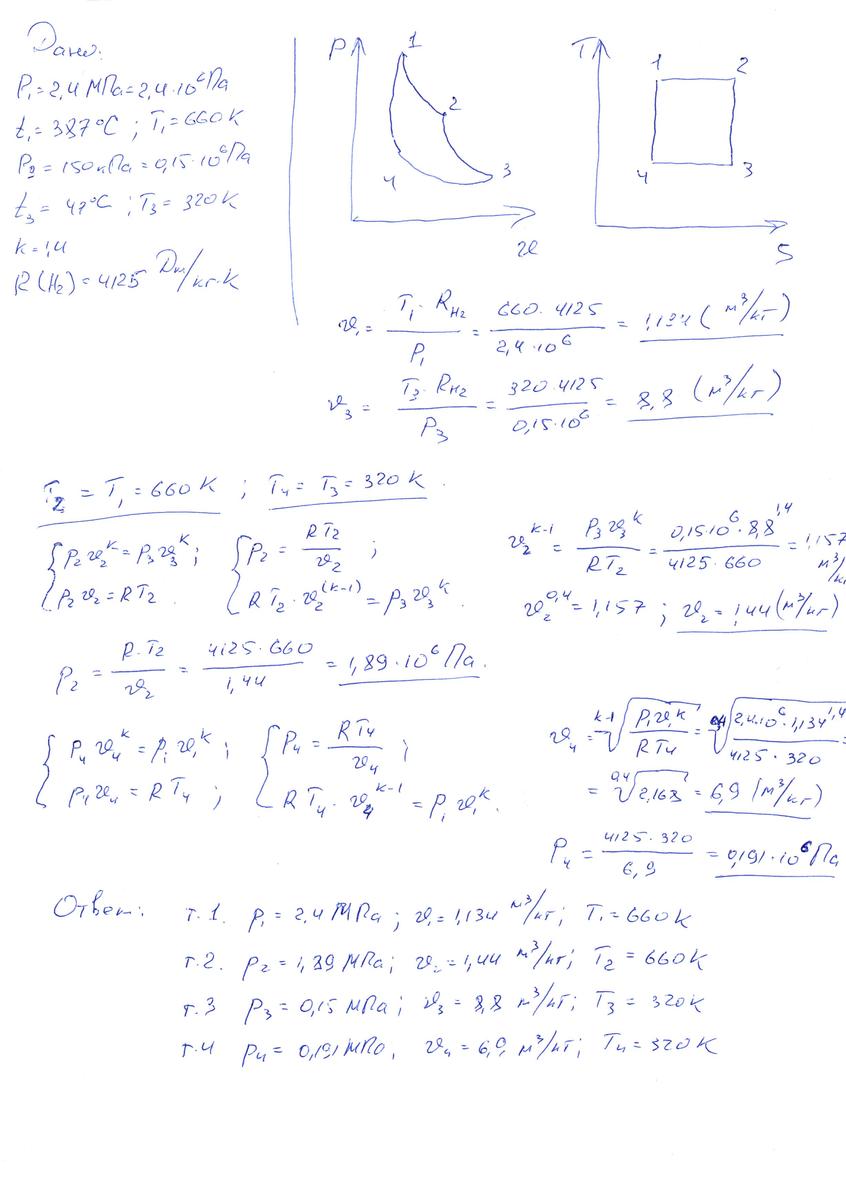 Дано:
P₁ = 2,4 МПа = 2,4·10⁶ Па
t₁ = 387°C ; T₁ = 660 K
P₃ = 150 кПа = 0,15·10⁶ Па
t₃ = 47°C ; T₃ = 320 K
k = 1,4
R(H₂) = 4125 Дж/кг·K
P 1 2 3 4 v
T 1 2 3 4 S
v₁ = T₁·R_H₂ / P₁ = 660·4125 / 2,4·10⁶ = 1,134 (м³/кг)
v₃ = T₃·R_H₂ / P₃ = 320·4125 / 0,15·10⁶ = 8,8 (м³/кг)
T₂ = T₁ = 660 K ; T₄ = T₃ = 320 K.
{ p₂v₂ᵏ = p₃v₃ᵏ ; p₂v₂ = RT₂.
{ p₂ = RT₂ / v₂ ; RT₂·v₂⁽ᵏ⁻¹⁾ = p₃v₃ᵏ.
v₂ᵏ⁻¹ = p₃v₃ᵏ / RT₂ = 0,15·10⁶·8,8¹,⁴ / 4125·660 = 1,157 м³/кг
v₂⁰,⁴ = 1,157 ; v₂ = 1,44 (м³/кг)
p₂ = R·T₂ / v₂ = 4125·660 / 1,44 = 1,89·10⁶ Па.
{ p₄v₄ᵏ = p₁v₁ᵏ ; p₄v₄ = RT₄ ;
{ p₄ = RT₄ / v₄ ; RT₄·v₄ᵏ⁻¹ = p₁v₁ᵏ.
v₄ = ᵏ⁻¹√(p₁v₁ᵏ / RT₄) = ⁰,⁴√(2,4·10⁶·1,134¹,⁴ / 4125·320) =
= ⁰,⁴√2,168 = 6,9 (м³/кг)
P₄ = 4125·320 / 6,9 = 0,191·10⁶ Па
Ответ: т.1. p₁ = 2,4 МПа ; v₁ = 1,134 м³/кг; T₁ = 660 K
т.2. p₂ = 1,89 МПа; v₂ = 1,44 м³/кг; T₂ = 660 K
т.3 p₃ = 0,15 МПа; v₃ = 8,8 м³/кг; T₃ = 320 K
т.4 p₄ = 0,191 МПа, v₄ = 6,9 м³/кг; T₄ = 320 K